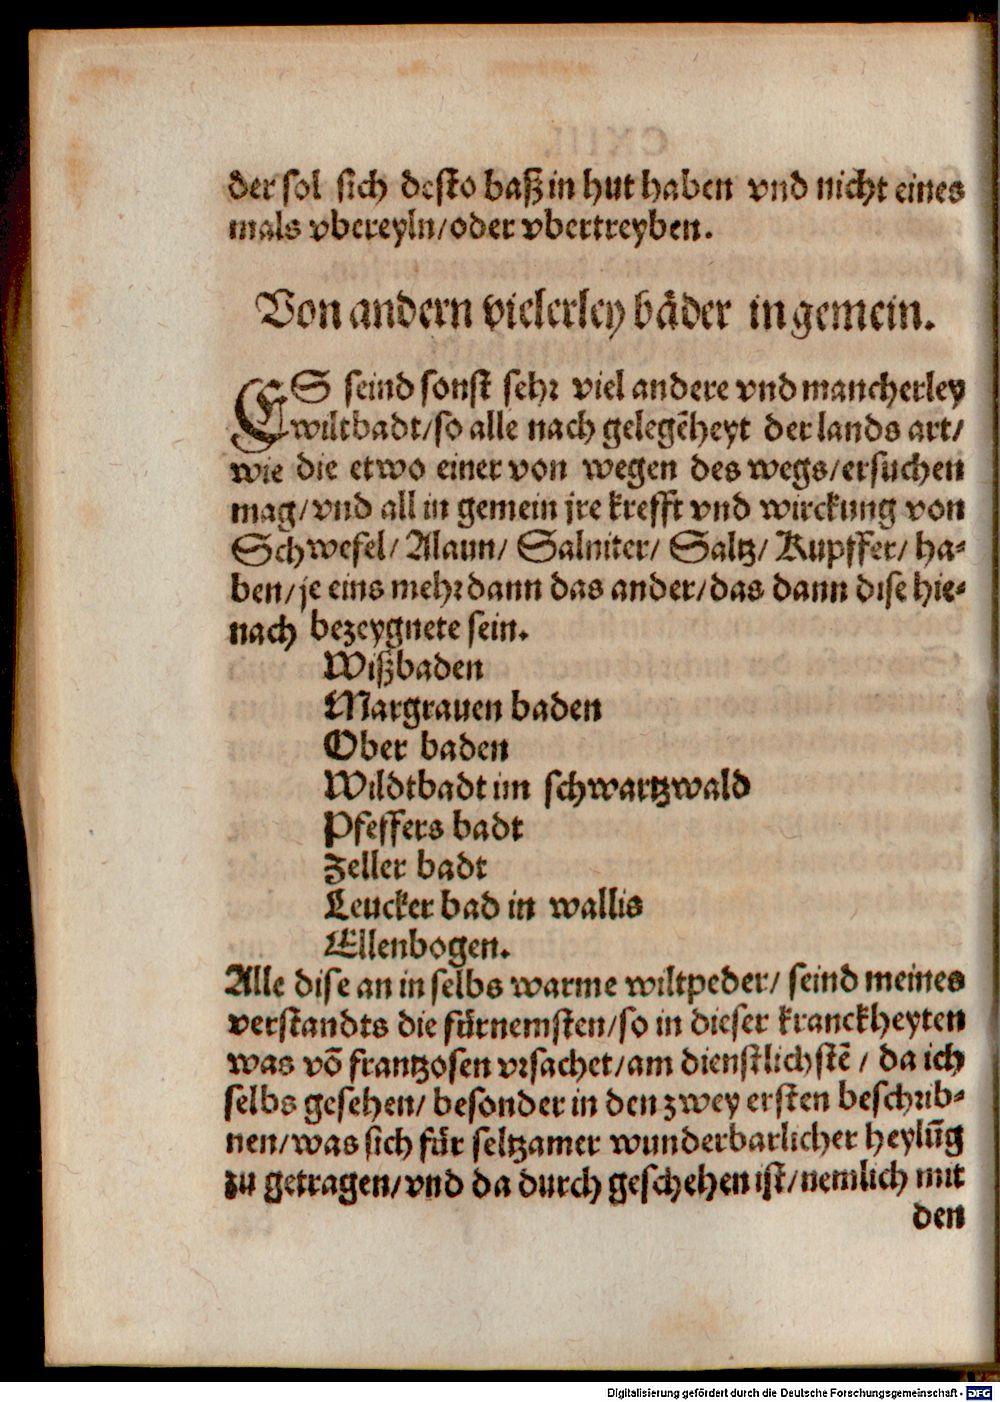 der sol sich desto baß in hut haben vnd nicht eines
mals vbereyln/oder vbertreyben.
Von andern vielerley bäder in gemein.
ES seind sonst sehr viel andere vnd mancherley
wiltbadt/so alle nach gelegẽheyt der lands art/
wie die etwo einer von wegen des wegs/ersuchen
mag/vnd all in gemein jre krefft vnd wirckung von
Schwefel/ Alaun/ Salniter/ Saltz/ Kupffer/ ha-
ben/je eins mehr dann das ander/das dann dise hie-
nach bezeygnete sein.
Wißbaden
Margrauen baden
Ober baden
Wildtbadt im schwartzwald
Pfeffers badt
Zeller badt
Leucker bad in wallis
Ellenbogen.
Alle dise an in selbs warme wiltpeder/ seind meines
verstandts die fürnemsten/so in dieser kranckheyten
was võ frantzosen vrsachet/am dienstlichstẽ / da ich
selbs gesehen/ besonder in den zwey ersten beschrib-
nen/was sich für seltzamer wunderbarlicher heylũg
zu getragen/vnd da durch geschehen ist/nemlich mit
den
Digitalisierung gefördert durch die Deutsche Forschungsgemeinschaft - DFG